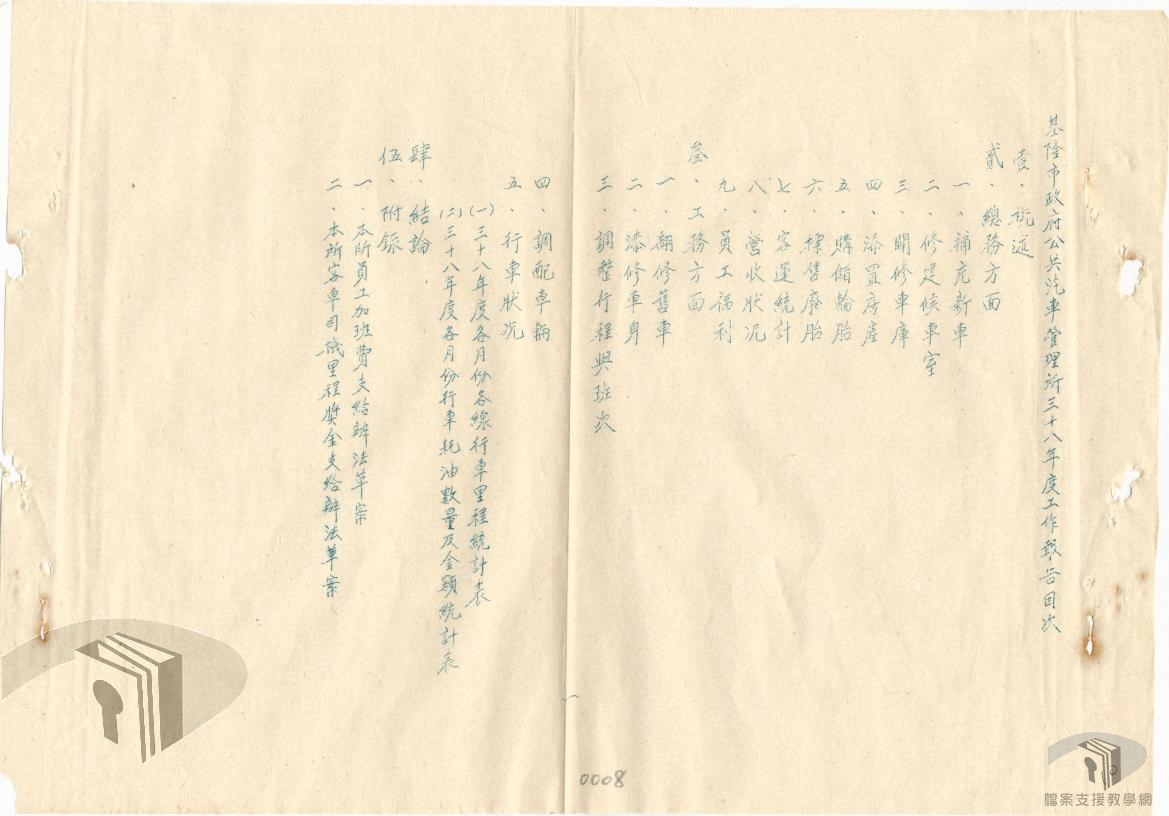 基隆市政府公共汽車管理所三十八年度工作報告目次
壹、概述
貳、總務方面
一、補充新車
二、修建候車室
三、開修車庫
四、添置房產
五、購儲輪胎
六、標售廢胎
七、客運統計
八、營收狀況
九、員工福利
叁、工務方面
一、翻修舊車
二、漆修車身
三、調整行程與班次
四、調配車輛
五、行車狀況
(一)三十八年度各月份各線行車里程統計表
(二)三十八年度各月份行車耗油數量及金額統計表
肆、結論
伍、附錄
一、本所員工加班費支給辦法草案
二、本所客車司機里程獎金支給辦法草案
一
0008
檔案支援教學網